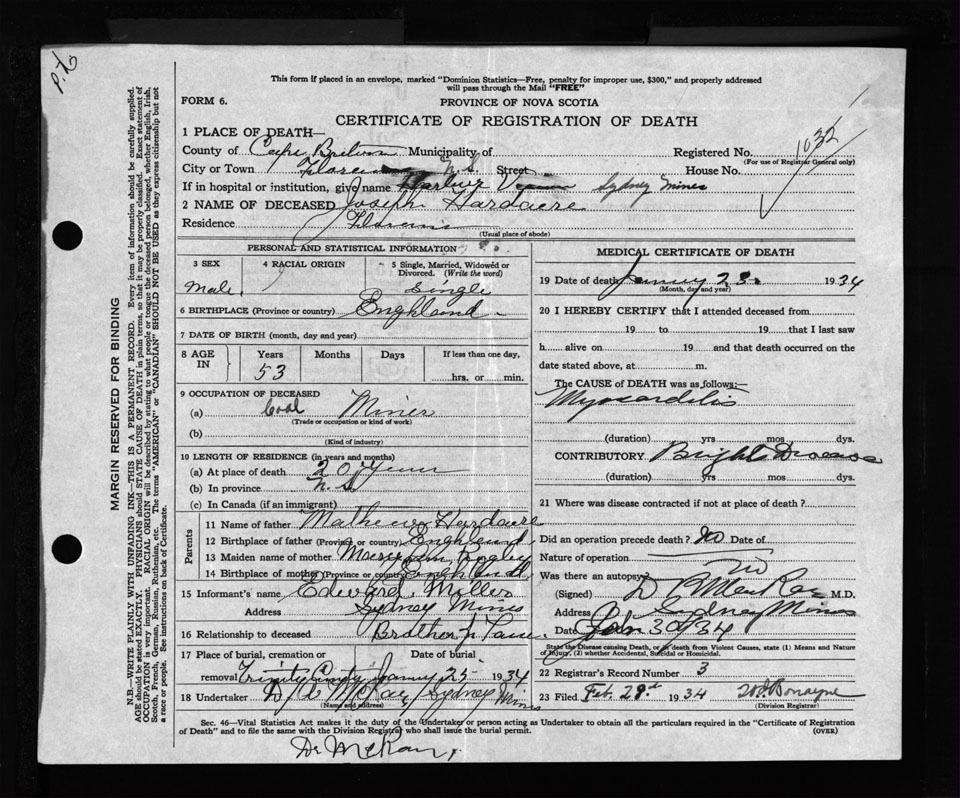 p.t.o
This form if placed in an envelope, marked "Dominion Statistics—Free, penalty for improper use, $300," and properly addressed
will pass through the Mail "FREE"
FORM 6.
PROVINCE OF NOVA SCOTIA
CERTIFICATE OF REGISTRATION OF DEATH
1 PLACE OF DEATH—
County of Cape Breton Municipality of Registered No. 1032
(For use of Registrar General only)
City or Town Florence N.S. Street House No.
If in hospital or institution, give name Harbour View Sydney Mines
2 NAME OF DECEASED Joseph Hardacre
Residence Florence
(Usual place of abode)
PERSONAL AND STATISTICAL INFORMATION
3 SEX 4 RACIAL ORIGIN 5 Single, Married, Widowed or Divorced. (Write the word)
Male Single
6 BIRTHPLACE (Province or country) Enghland
7 DATE OF BIRTH (month, day and year)
8 AGE IN Years Months Days If less than one day,
53 hrs. or min.
9 OCCUPATION OF DECEASED
(a) Coal Miner
(Trade or occupation or kind of work)
(b)
(Kind of industry)
10 LENGTH OF RESIDENCE (in years and months)
(a) At place of death 20 Years
(b) In province N.S.
(c) In Canada (if an immigrant)
Parents
11 Name of father Mathew Hardacre
12 Birthplace of father (Province or country) Enghland
13 Maiden name of mother Mary Ann
14 Birthplace of mother (Province or country) Enghland
15 Informant's name Edward Miller
Address Sydney Mines
16 Relationship to deceased Brother in Law
17 Place of burial, cremation or removal Date of burial
Trinity January 25 1934
18 Undertaker McKay Sydney Mines
(Name and address)
MEDICAL CERTIFICATE OF DEATH
19 Date of death January 23 1934
(Month, day and year)
20 I HEREBY CERTIFY that I attended deceased from
19 to 19 that I last saw
h alive on 19 and that death occurred on the
date stated above, at m.
The CAUSE OF DEATH was as follows:—
Myocarditis
(duration) yrs mos dys.
CONTRIBUTORY Bright Disease
(duration) yrs mos dys.
21 Where was disease contracted if not at place of death?
Did an operation precede death? No Date of
Nature of operation
Was there an autopsy? no
(Signed) M.D.
Address Sydney Mines
Date Jan 30/34
State the Disease causing Death, or in death from Violent Causes, state (1) Means and Nature
of Injury, (2) whether Accidental, Suicidal or Homicidal.
22 Registrar's Record Number 3
23 Filed Feb. 1934
(Division Registrar)
Sec. 46—Vital Statistics Act makes it the duty of the Undertaker or person acting as Undertaker to obtain all the particulars required in the "Certificate of Registration
of Death" and to file the same with the Division Registrar who shall issue the burial permit.
(OVER)
MARGIN RESERVED FOR BINDING
N.B.—WRITE PLAINLY WITH UNFADING INK—THIS IS A PERMANENT RECORD. Every item of information should be carefully supplied.
AGE should be stated EXACTLY. PHYSICIANS should STATE CAUSE OF DEATH in plain terms, so that it may be properly classified. Exact statement of
OCCUPATION is very important. RACIAL ORIGIN will be described by stating to what people or tongue the deceased person belonged, whether English, Irish,
Scotch, French, German, Russian, Ruthenian, etc. The terms "AMERICAN" or "CANADIAN" SHOULD NOT BE USED as they express citizenship but not
a race or people. See instructions on back of Certificate.